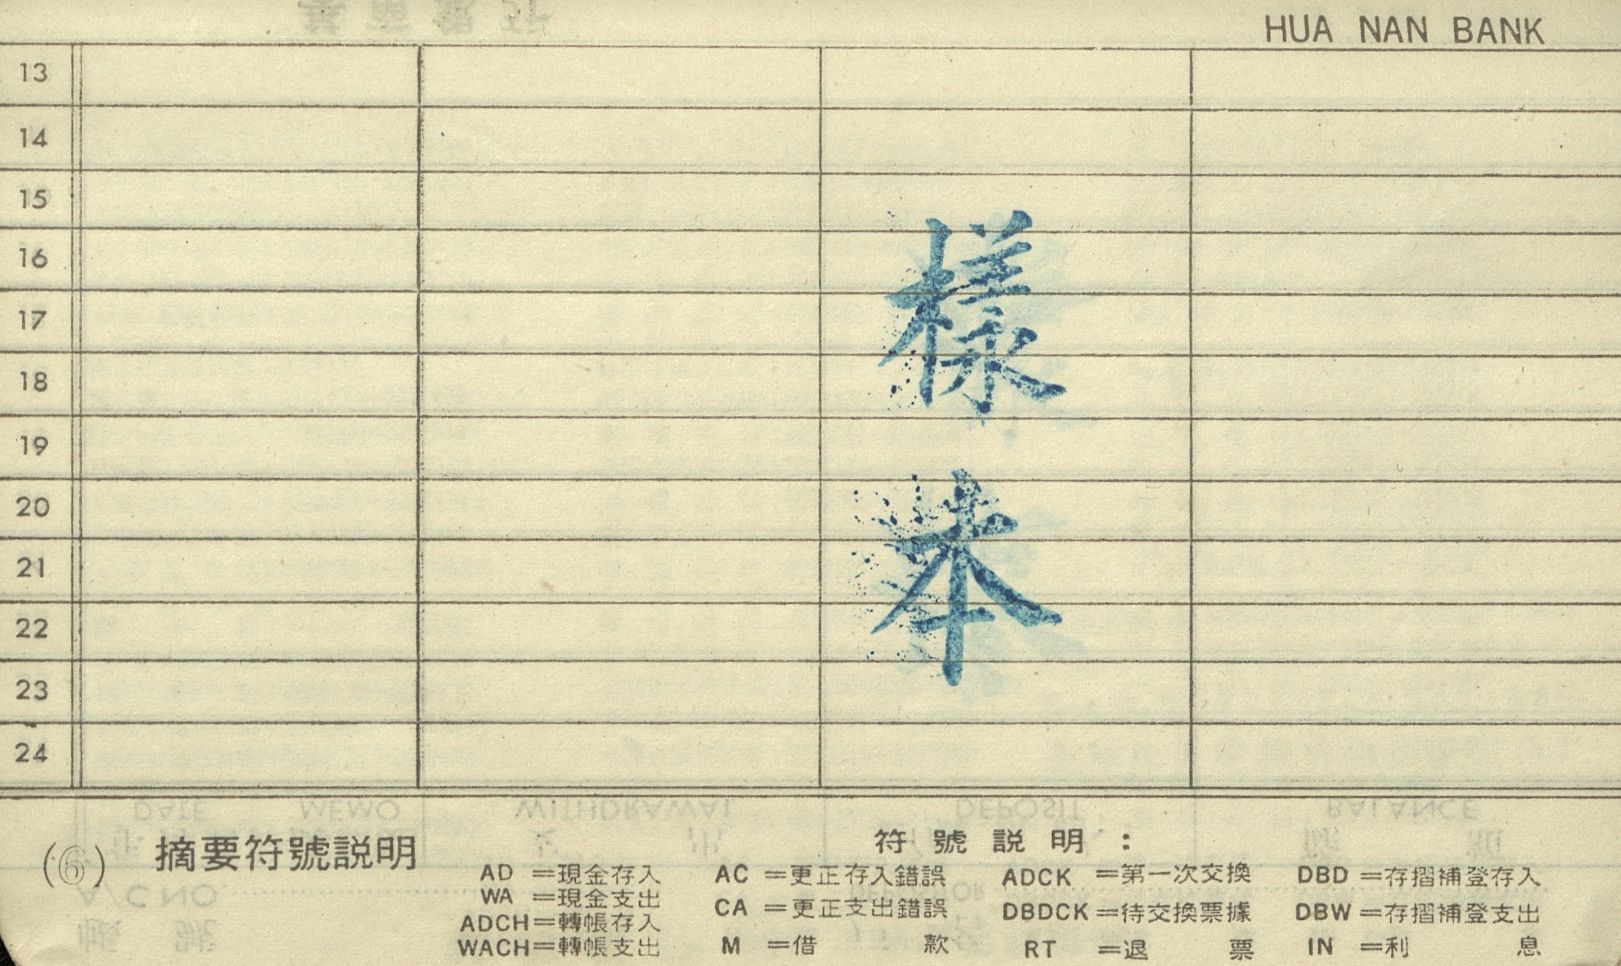 HUA NAN BANK
13
14
15
16
17
18
19
20
21
22
23
24
樣
本
(6) 摘要符號説明
符號説明:
AD =現金存入
WA =現金支出
ADCH=轉帳存入
WACH=轉帳支出
AC =更正存入錯誤
CA =更正支出錯誤
M =借 款
ADCK =第一次交換
DBDCK=待交換票據
RT =退 票
DBD =存摺補登存入
DBW =存摺補登支出
IN =利 息